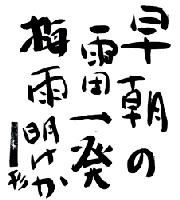 早朝の
雷一発
梅雨明けか